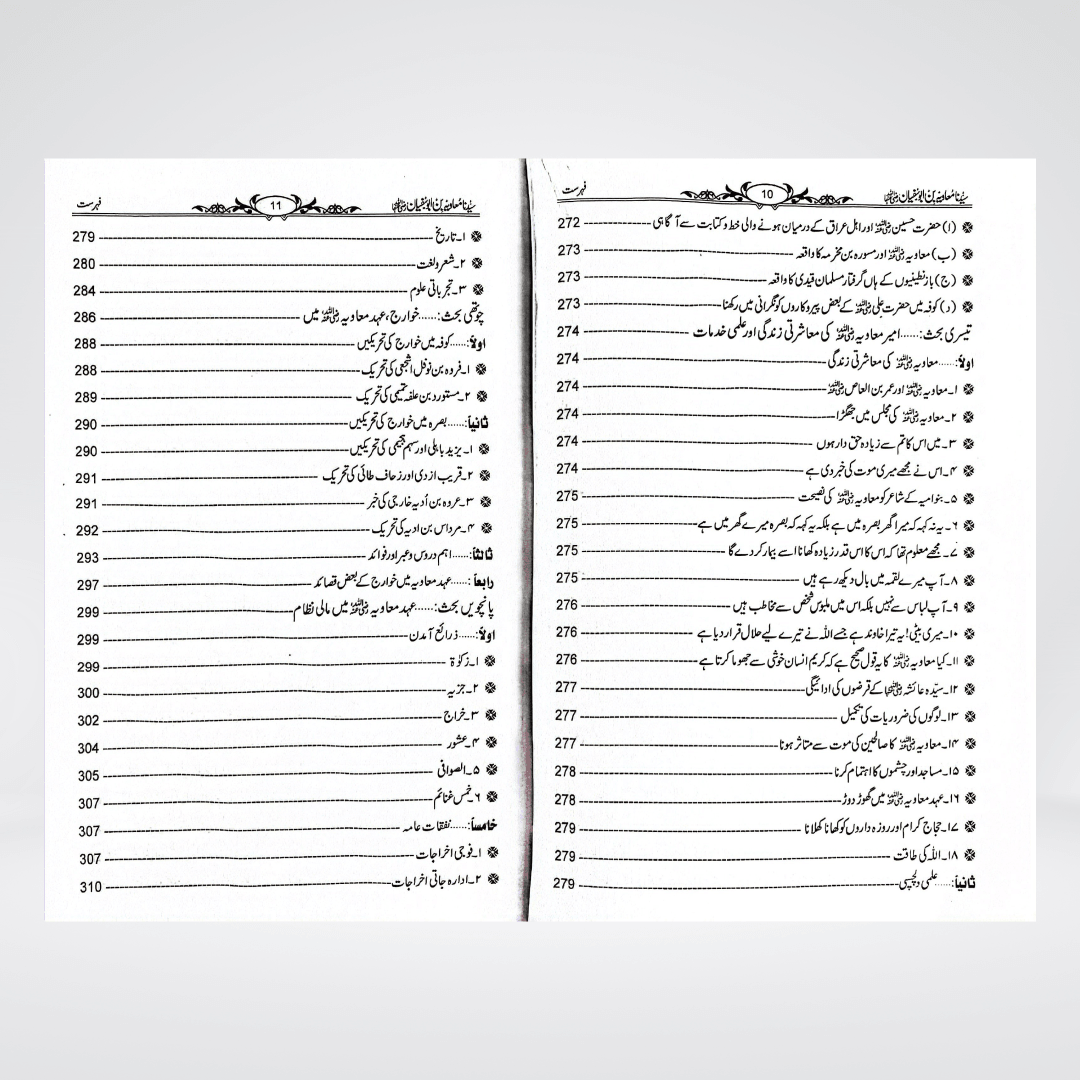 سیدنا معاویہ بن ابوسفیان رضی اللہ عنہ 10 فہرست
(ا) حضرت حسین رضی اللہ عنہ اور اہل عراق کے درمیان ہونے والی خط و کتابت سے آگاہی 272
(ب) معاویہ رضی اللہ عنہ اور مسورہ بن مخرمہ کا واقعہ 273
(ج) بازنطینیوں کے ہاں گرفتار مسلمان قیدی کا واقعہ 273
(د) کوفہ میں حضرت علی رضی اللہ عنہ کے بعض پیروکاروں کو نگرانی میں رکھنا 273
تیسری بحث:...... امیر معاویہ رضی اللہ عنہ کی معاشرتی زندگی اور علمی خدمات 274
اولاً:...... معاویہ رضی اللہ عنہ کی معاشرتی زندگی 274
۱۔ معاویہ رضی اللہ عنہ اور عمر بن العاص رضی اللہ عنہ 274
۲۔ معاویہ رضی اللہ عنہ کی مجلس میں جھگڑا 274
۳۔ میں اس کا تم سے زیادہ حق دار ہوں 274
۴۔ اس نے مجھے میری موت کی خبر دی ہے 274
۵۔ بنوامیہ کے شاعر کو معاویہ رضی اللہ عنہ کی نصیحت 275
۶۔ یہ نہ کہہ کہ میرا گھر بصرہ میں ہے بلکہ یہ کہہ کہ بصرہ میرے گھر میں ہے 275
۷۔ مجھے معلوم تھا کہ اس کا اس قدر زیادہ کھانا اسے بیمار کر دے گا 275
۸۔ آپ میرے لقمہ میں بال دیکھ رہے ہیں 275
۹۔ آپ لباس سے نہیں بلکہ اس میں ملبوس شخص سے مخاطب ہیں 276
۱۰۔ میری بیٹی! یہ تیرا خاوند ہے جسے اللہ نے تیرے لیے حلال قرار دیا ہے 276
۱۱۔ کیا معاویہ رضی اللہ عنہ کا یہ قول صحیح ہے کہ کریم انسان خوشی سے جھوما کرتا ہے 276
۱۲۔ سیّدہ عائشہ رضی اللہ عنہا کے قرضوں کی ادائیگی 277
۱۳۔ لوگوں کی ضروریات کی تکمیل 277
۱۴۔ معاویہ رضی اللہ عنہ کا صالحین کی موت سے متاثر ہونا 277
۱۵۔ مساجد اور چشموں کا اہتمام کرنا 278
۱۶۔ عہد معاویہ رضی اللہ عنہ میں گھوڑ دوڑ 278
۱۷۔ حجاج کرام اور روزہ داروں کو کھانا کھلانا 279
۱۸۔ اللہ کی طاقت 279
ثانیاً:...... علمی دلچسپی 279
سیدنا معاویہ بن ابوسفیان رضی اللہ عنہ 11 فہرست
۱۔ تاریخ 279
۲۔ شعر و لغت 280
۳۔ تجرباتی علوم 284
چوتھی بحث:...... خوارج، عہد معاویہ رضی اللہ عنہ میں 286
اولاً:...... کوفہ میں خوارج کی تحریکیں 288
۱۔ فروہ بن نوفل اشجعی کی تحریک 288
۲۔ مستورد بن علفہ تیمی کی تحریک 289
ثانیاً:...... بصرہ میں خوارج کی تحریکیں 290
۱۔ یزید باہلی اور سہم ہجیمی کی تحریکیں 290
۲۔ قریب ازدی اور زحاف طائی کی تحریک 291
۳۔ عروہ بن اُدیہ خارجی کی خبر 291
۴۔ مرداس بن ادیہ کی تحریک 292
ثالثاً:...... اہم دروس و عبر اور فوائد 293
رابعاً:...... عہد معاویہ میں خوارج کے بعض قصائد 297
پانچویں بحث:...... عہد معاویہ رضی اللہ عنہ میں مالی نظام 299
اولاً:...... ذرائع آمدن 299
۱۔ زکوٰۃ 299
۲۔ جزیہ 300
۳۔ خراج 302
۴۔ عشور 304
۵۔ الصوافی 305
۶۔ خمس غنائم 307
خامساً:...... نفقات عامہ 307
۱۔ فوجی اخراجات 307
۲۔ ادارہ جاتی اخراجات 310